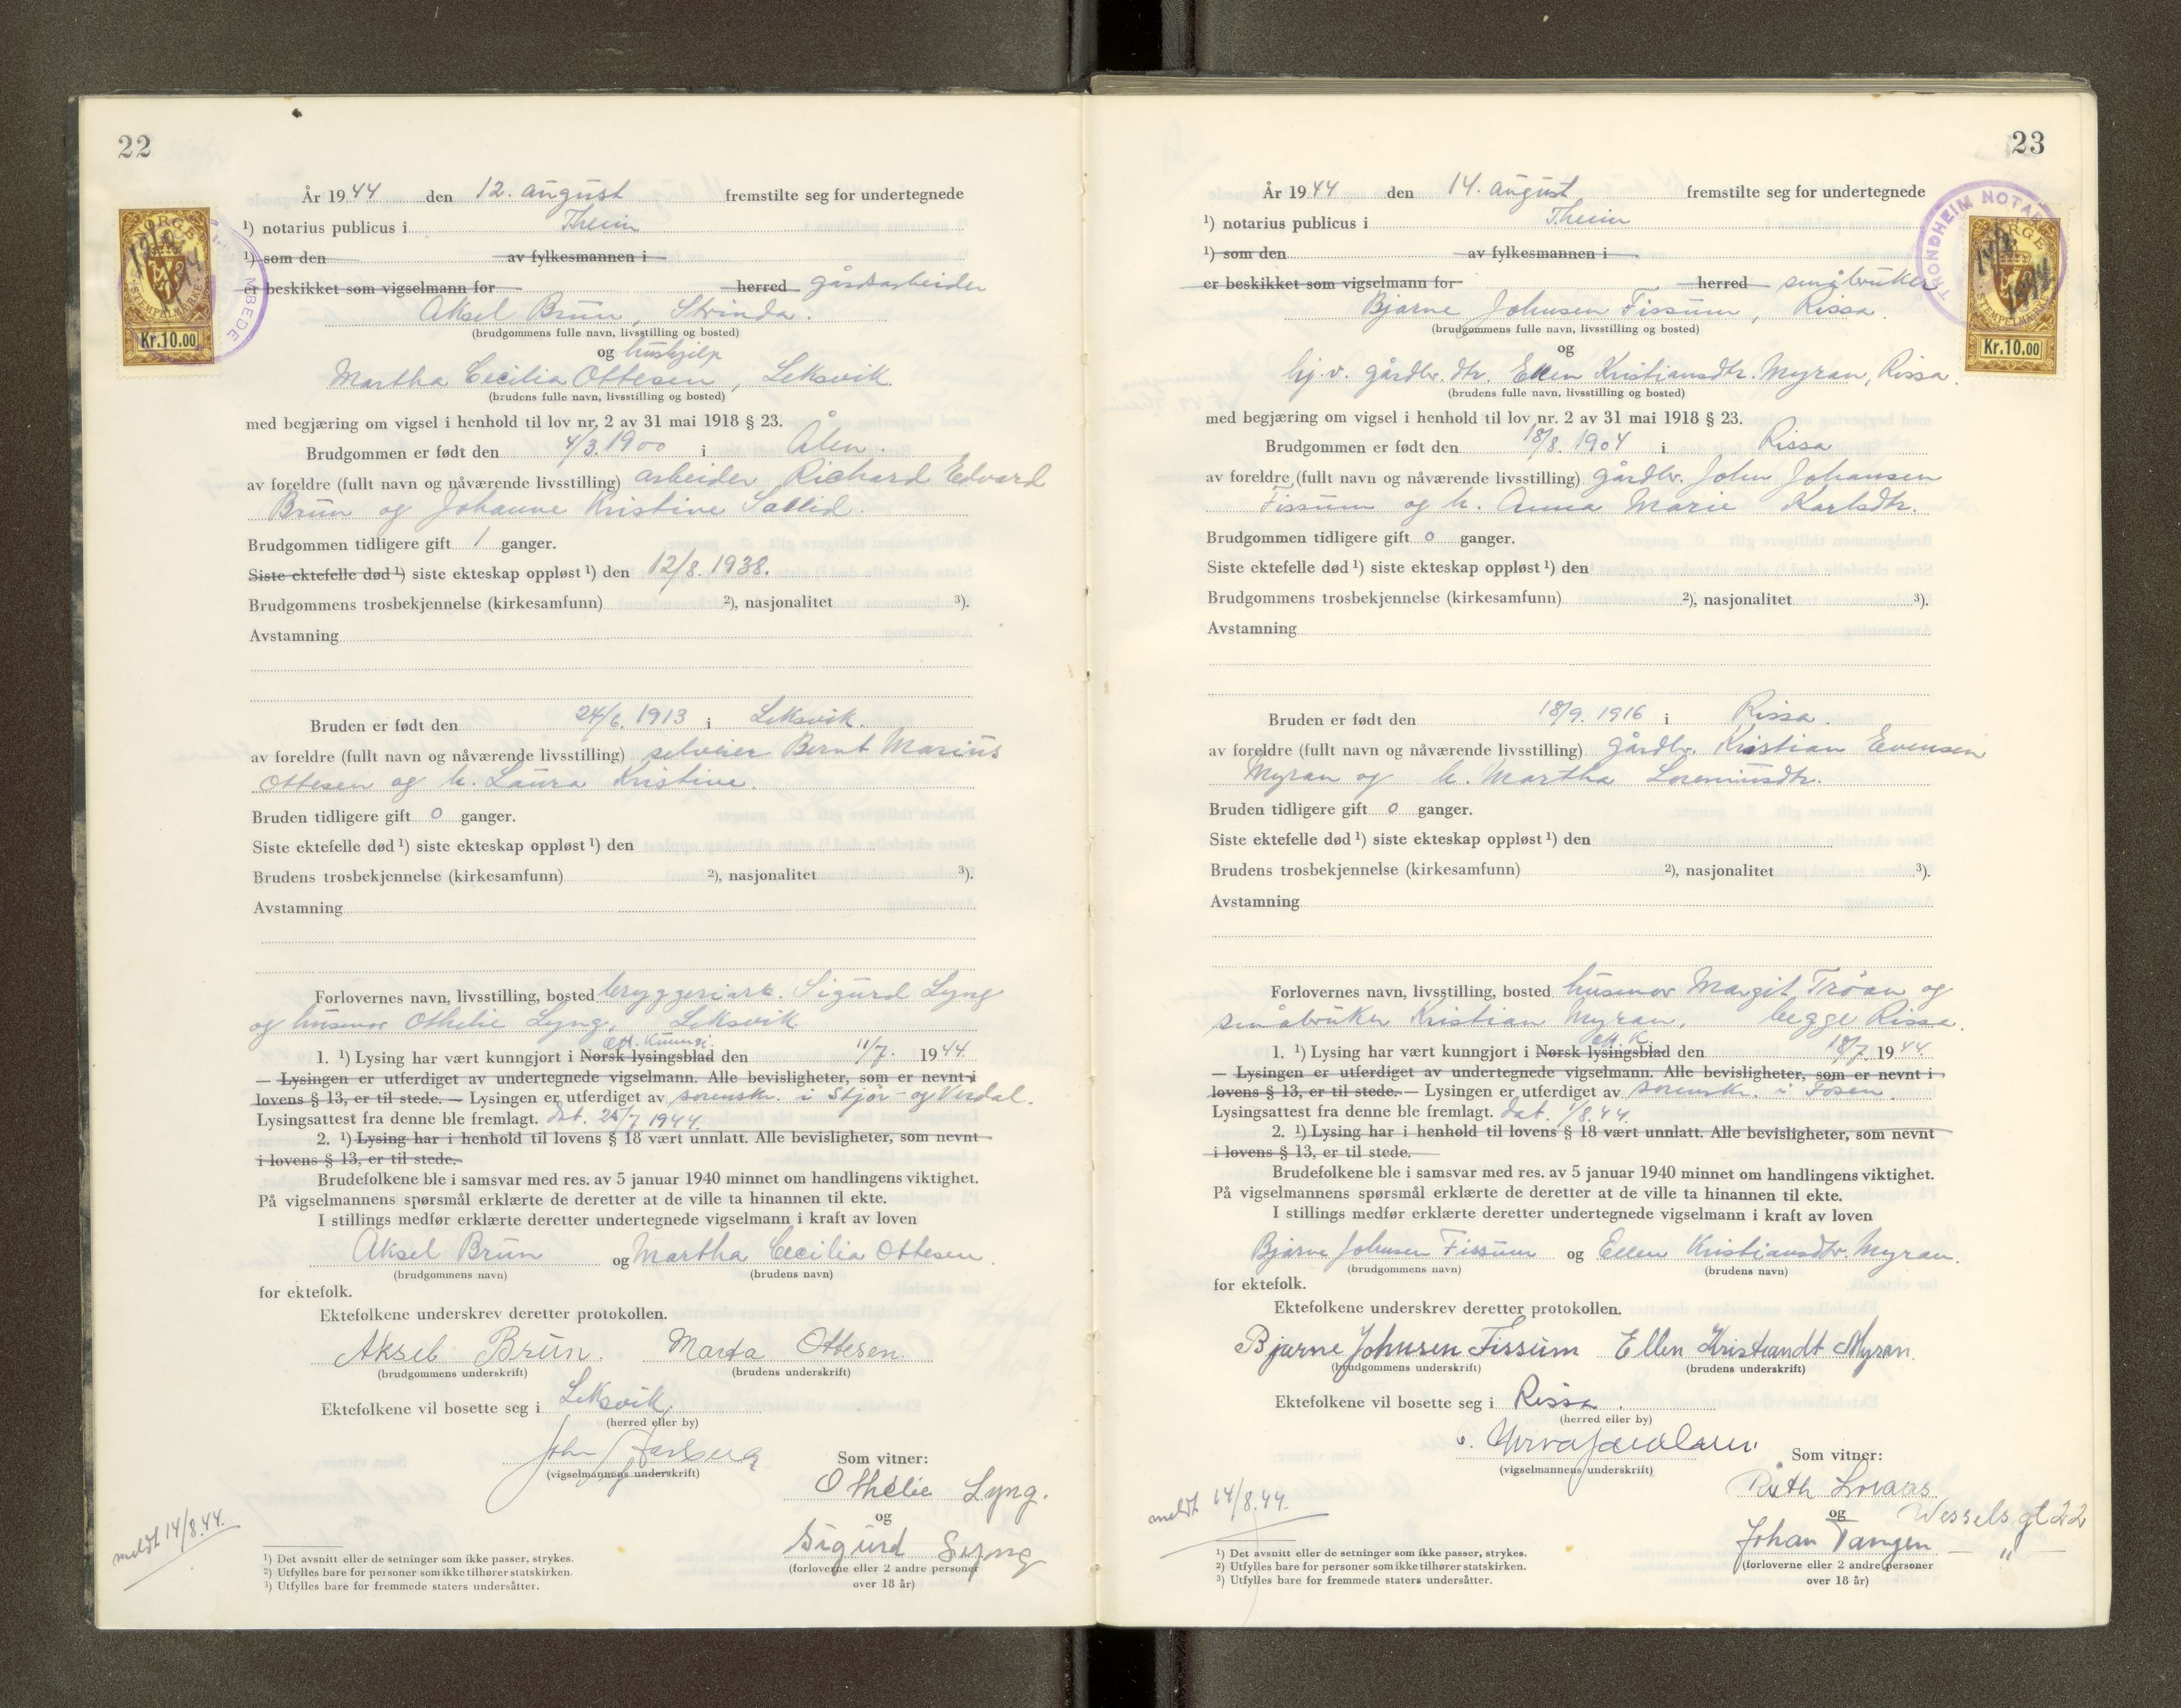 22
År 1944 den 12. august fremstilte seg for undertegnede
¹) notarius publicus i Theim
¹) som den av fylkesmannen i
er beskikket som vigselmann for herred gårdsarbeider
Aksel Brun, Strinda.
(brudgommens fulle navn, livsstilling og bosted)
og hushjelp
Martha Cecilia Ottesen, Leksvik.
(brudens fulle navn, livsstilling og bosted)
med begjæring om vigsel i henhold til lov nr. 2 av 31 mai 1918 § 23.
Brudgommen er født den 4/3.1900 i Ålen.
av foreldre (fullt navn og nåværende livsstilling) arbeider Richard Edvard
Brun og Johanne Kristine
Brudgommen tidligere gift 1 ganger.
Siste ektefelle død ¹) siste ekteskap oppløst ¹) den 12/8. 1938.
Brudgommens trosbekjennelse (kirkesamfunn) ²), nasjonalitet ³).
Avstamning
Bruden er født den 24/6. 1913 i Leksvik.
av foreldre (fullt navn og nåværende livsstilling) selveier Bernt Marius
Ottesen og h. Laura Kristine.
Bruden tidligere gift 0 ganger.
Siste ektefelle død ¹) siste ekteskap oppløst ¹) den
Brudens trosbekjennelse (kirkesamfunn) ²), nasjonalitet ³).
Avstamning
Forlovernes navn, livsstilling, bosted bryggeriarb. Sigurd Lyng
og husmor Othelie Lyng, Leksvik
off. Kunngj.
1. ¹) Lysing har vært kunngjort i Norsk lysingsblad den 11/7. 1944.
— Lysingen er utferdiget av undertegnede vigselmann. Alle bevisligheter, som er nevnt i
lovens § 13, er til stede. — Lysingen er utferdiget av sorenskr. i Stjør- og Verdal.
Lysingsattest fra denne ble fremlagt. dat. 25/7 1944.
2. ¹) Lysing har i henhold til lovens § 18 vært unnlatt. Alle bevisligheter, som nevnt
i lovens § 13, er til stede.
Brudefolkene ble i samsvar med res. av 5 januar 1940 minnet om handlingens viktighet.
På vigselmannens spørsmål erklærte de deretter at de ville ta hinannen til ekte.
I stillings medfør erklærte deretter undertegnede vigselmann i kraft av loven
Aksel Brun og Martha Cecilia Ottesen.
(brudgommens navn) (brudens navn)
for ektefolk.
Ektefolkene underskrev deretter protokollen.
Aksel Brun. Marta Ottesen.
(brudgommens underskrift) (brudens underskrift)
Ektefolkene vil bosette seg i Leksvik.
(herred eller by)
John
(vigselmannens underskrift)
Som vitner:
Othelie Lyng.
og
Sigurd Lyng
(forloverne eller 2 andre personer
over 18 år)
meldt 14/8.44.
¹) Det avsnitt eller de setninger som ikke passer, strykes.
²) Utfylles bare for personer som ikke tilhører statskirken.
³) Utfylles bare for fremmede staters undersåtter.
NORGE
STEMPELMERKE
Kr.10.00
MBEDE
23
År 1944 den 14. august fremstilte seg for undertegnede
¹) notarius publicus i Theim
¹) som den av fylkesmannen i
er beskikket som vigselmann for herred småbruker
Bjarne Johnsen Fissum, Rissa.
(brudgommens fulle navn, livsstilling og bosted)
og
hj.v. gårdbr. dtr. Ellen Kristiansdtr. Myran, Rissa.
(brudens fulle navn, livsstilling og bosted)
med begjæring om vigsel i henhold til lov nr. 2 av 31 mai 1918 § 23.
Brudgommen er født den 18/8. 1904 i Rissa
av foreldre (fullt navn og nåværende livsstilling) gårdbr. John Johansen
Fissum og h. Anna Marie Karlsdtr.
Brudgommen tidligere gift 0 ganger.
Siste ektefelle død ¹) siste ekteskap oppløst ¹) den
Brudgommens trosbekjennelse (kirkesamfunn) ²), nasjonalitet ³).
Avstamning
Bruden er født den 18/9. 1916 i Rissa.
av foreldre (fullt navn og nåværende livsstilling) gårdbr. Kristian Evensen
Myran og h. Martha Loreniusdtr.
Bruden tidligere gift 0 ganger.
Siste ektefelle død ¹) siste ekteskap oppløst ¹) den
Brudens trosbekjennelse (kirkesamfunn) ²), nasjonalitet ³).
Avstamning
Forlovernes navn, livsstilling, bosted husmor Margit Trøan og
småbruker Kristian Myran, begge Rissa.
off. K.
1. ¹) Lysing har vært kunngjort i Norsk lysingsblad den 18/7. 1944.
— Lysingen er utferdiget av undertegnede vigselmann. Alle bevisligheter, som er nevnt i
lovens § 13, er til stede. — Lysingen er utferdiget av sorenskr. i Fosen.
Lysingsattest fra denne ble fremlagt. dat. 1/8.44.
2. ¹) Lysing har i henhold til lovens § 18 vært unnlatt. Alle bevisligheter, som nevnt
i lovens § 13, er til stede.
Brudefolkene ble i samsvar med res. av 5 januar 1940 minnet om handlingens viktighet.
På vigselmannens spørsmål erklærte de deretter at de ville ta hinannen til ekte.
I stillings medfør erklærte deretter undertegnede vigselmann i kraft av loven
Bjarne Johnsen Fissum og Ellen Kristiansdtr. Myran.
(brudgommens navn) (brudens navn)
for ektefolk.
Ektefolkene underskrev deretter protokollen.
Bjarne Johnsen Fissum Ellen Kristiandt Myran.
(brudgommens underskrift) (brudens underskrift)
Ektefolkene vil bosette seg i Rissa.
(herred eller by)
(vigselmannens underskrift)
Som vitner:
Ruth
og Wessels gt 22
Johan Tangen — " —
(forloverne eller 2 andre personer
over 18 år)
meldt 14/8.44.
¹) Det avsnitt eller de setninger som ikke passer, strykes.
²) Utfylles bare for personer som ikke tilhører statskirken.
³) Utfylles bare for fremmede staters undersåtter.
TRONDHEIM NOTAR
NORGE
STEMPELMERKE
Kr.10.00